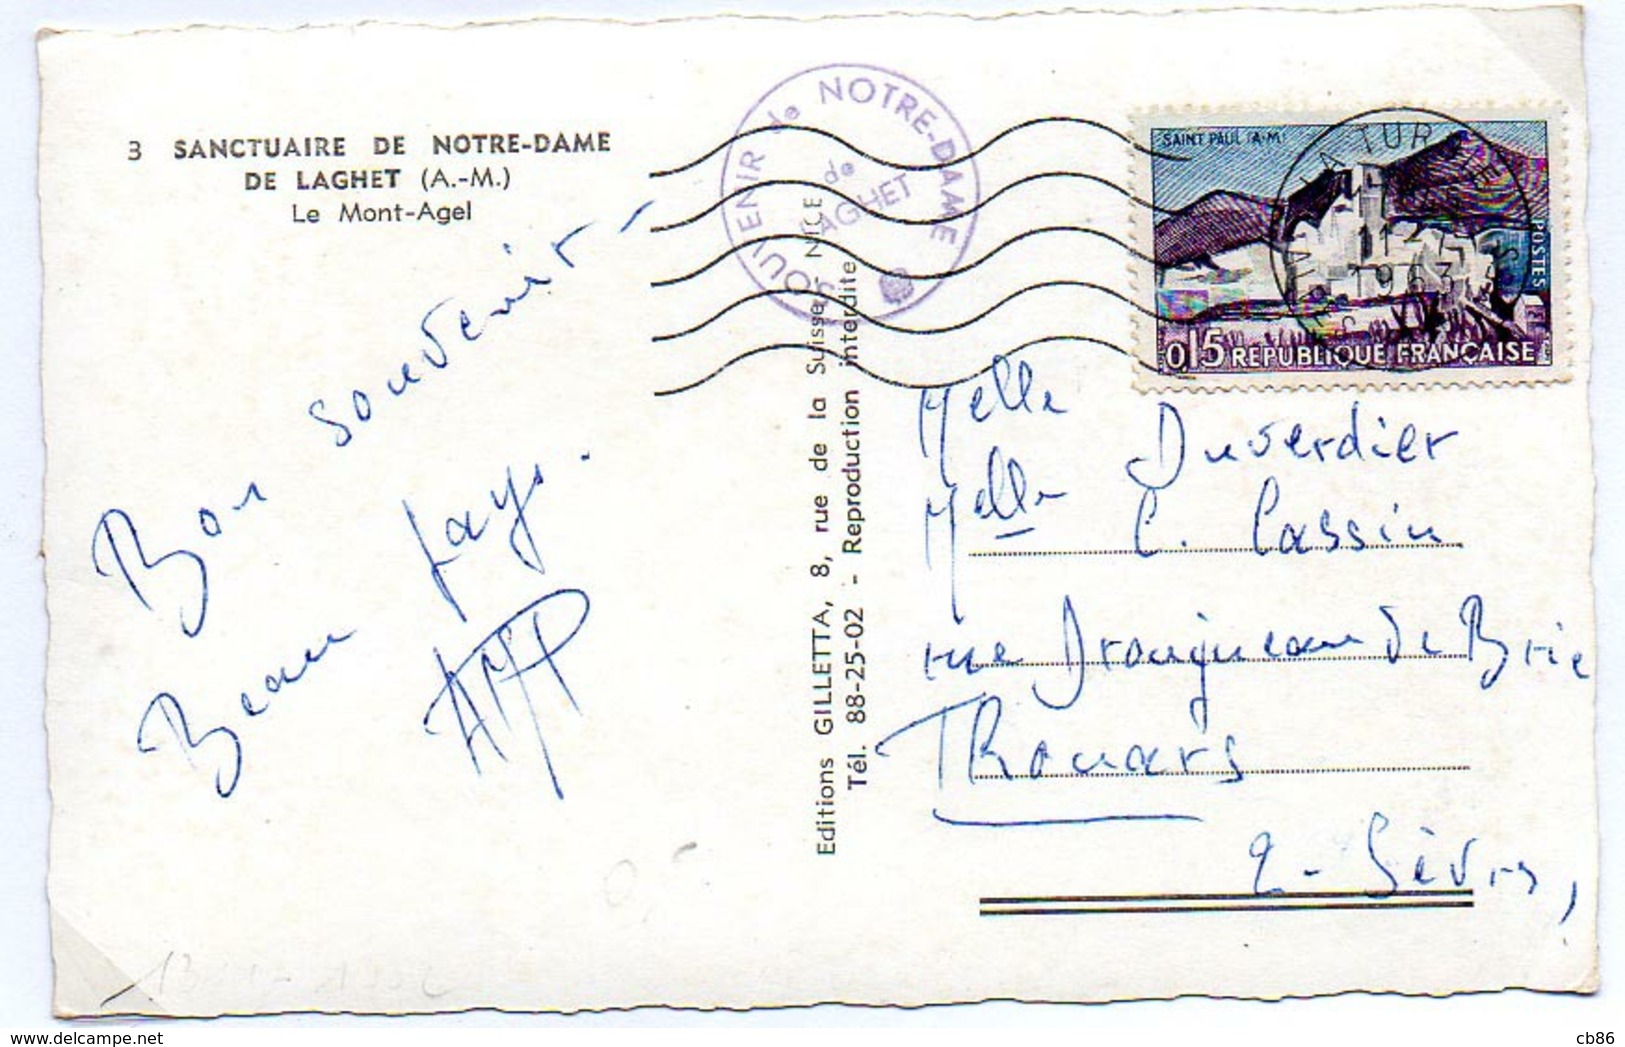 3 SANCTUAIRE DE NOTRE-DAME
DE LAGHET (A.-M.)
Le Mont-Agel
Bon souvenir -
Beau pays.
AMP
Editions GILLETTA, 8, rue de la Suisse, NICE
Tél. 88-25-02 - Reproduction interdite
SOUVENIR de NOTRE-DAME
de LAGHET
SAINT PAUL (A-M)
POSTES
0,15 RÉPUBLIQUE FRANÇAISE
LA TURBIE
1963
Melle Duverdier
Melle C. Cassin
rue Drouyneau de Brie
Thouars
2-Sèvres,
delcampe.net
cb86